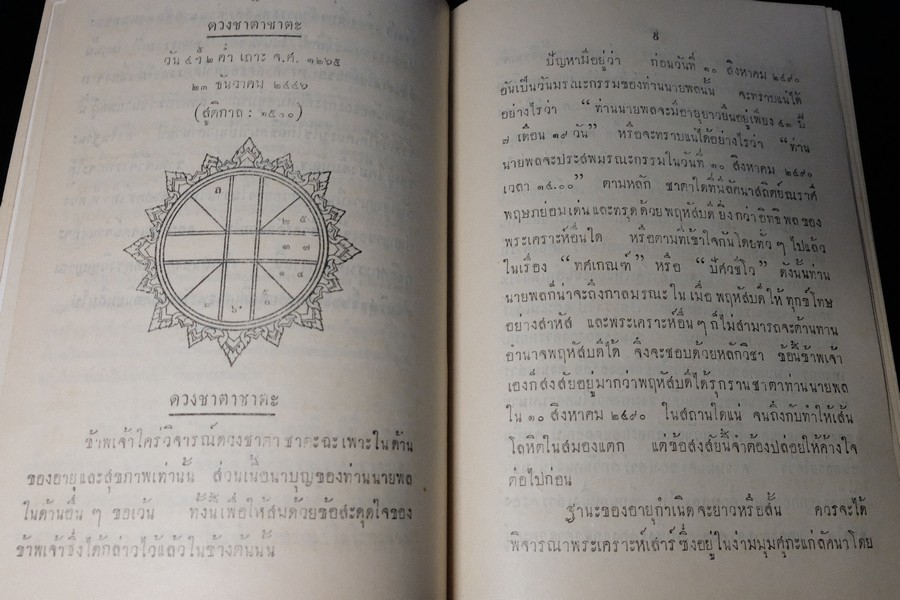 ดวงชาตาชาตะ
วัน ๔ ๑๒ ค่ำ เถาะ จ.ศ. ๑๒๖๕
๒๓ ธันวาคม ๒๔๔๖
(สูติกาล : ๑๕.๑๐)
ดวงชาตาชาตะ
ข้าพเจ้าใคร่วิจารณ์ดวงชาตา ชาตะฉะเพาะใน ด้าน
ของอายุและสุขภาพเท่านั้น ส่วนเนื้อนาบุญของท่านนายพล
ในด้านอื่น ๆ ขอเว้น ทั้งนี้เพื่อให้สมด้วยข้อสะดุดใจของ
ข้าพเจ้าซึ่งได้กล่าวไว้แล้วในข้างต้นนั้น
ปัญหามีอยู่ว่า ก่อนวันที่ ๑๐ สิงหาคม ๒๔๙๐
อันเป็นวันมรณะกรรมของท่านนายพลนั้น จะทราบแน่ได้
อย่างไรว่า “ท่านนายพลจะมีอายุยาวยืนอยู่เพียง ๔๓ ปี
๗ เดือน ๑๙ วัน” หรือจะทราบแน่ได้อย่างไรว่า “ท่าน
นายพลจะประสพมรณะกรรมในวันที่ ๑๐ สิงหาคม ๒๔๙๐
เวลา ๑๔.๐๐” ตามหลัก ชาตาใดที่มีลัคนาสถิตย์ณราศี
พฤษภย่อมเด่น และทรุด ด้วยพฤหัสบดี ยิ่งกว่าอิทธิพลของ
พระเคราะห์อื่นใด หรือตามที่เข้าใจกันโดยทั่ว ๆ ไปแล้ว
ในเรื่อง “ทศเกณฑ์” หรือ “ปัศวชีโว” ดังนั้นท่าน
นายพลก็น่าจะถึงกาลมรณะ ใน เมื่อ พฤหัสบดี ให้ ทุกข์ โทษ
อย่างสาหัส และพระเคราะห์อื่น ๆ ก็ไม่สามารถจะต้านทาน
อำนาจพฤหัสบดีได้ จึงจะชอบด้วยหลักวิชา ข้อนี้ข้าพเจ้า
เองก็สงสัยอยู่มากว่าพฤหัสบดีได้รุกรานชาตาท่านนายพล
ใน ๑๐ สิงหาคม ๒๔๙๐ ในสถานใดแน่ จนถึงกับทำให้เส้น
โลหิตในสมองแตก แต่ข้อสงสัยนี้จำต้องปล่อยให้ค้างใจ
ต่อไปก่อน
ฐานะของอายุกำเนิด จะยาวหรือสั้น ควรจะได้
พิจารณาพระเคราะห์เสาร์ ซึ่งอยู่ในง่ามมุมศุภะแก่ลัคนาโดย